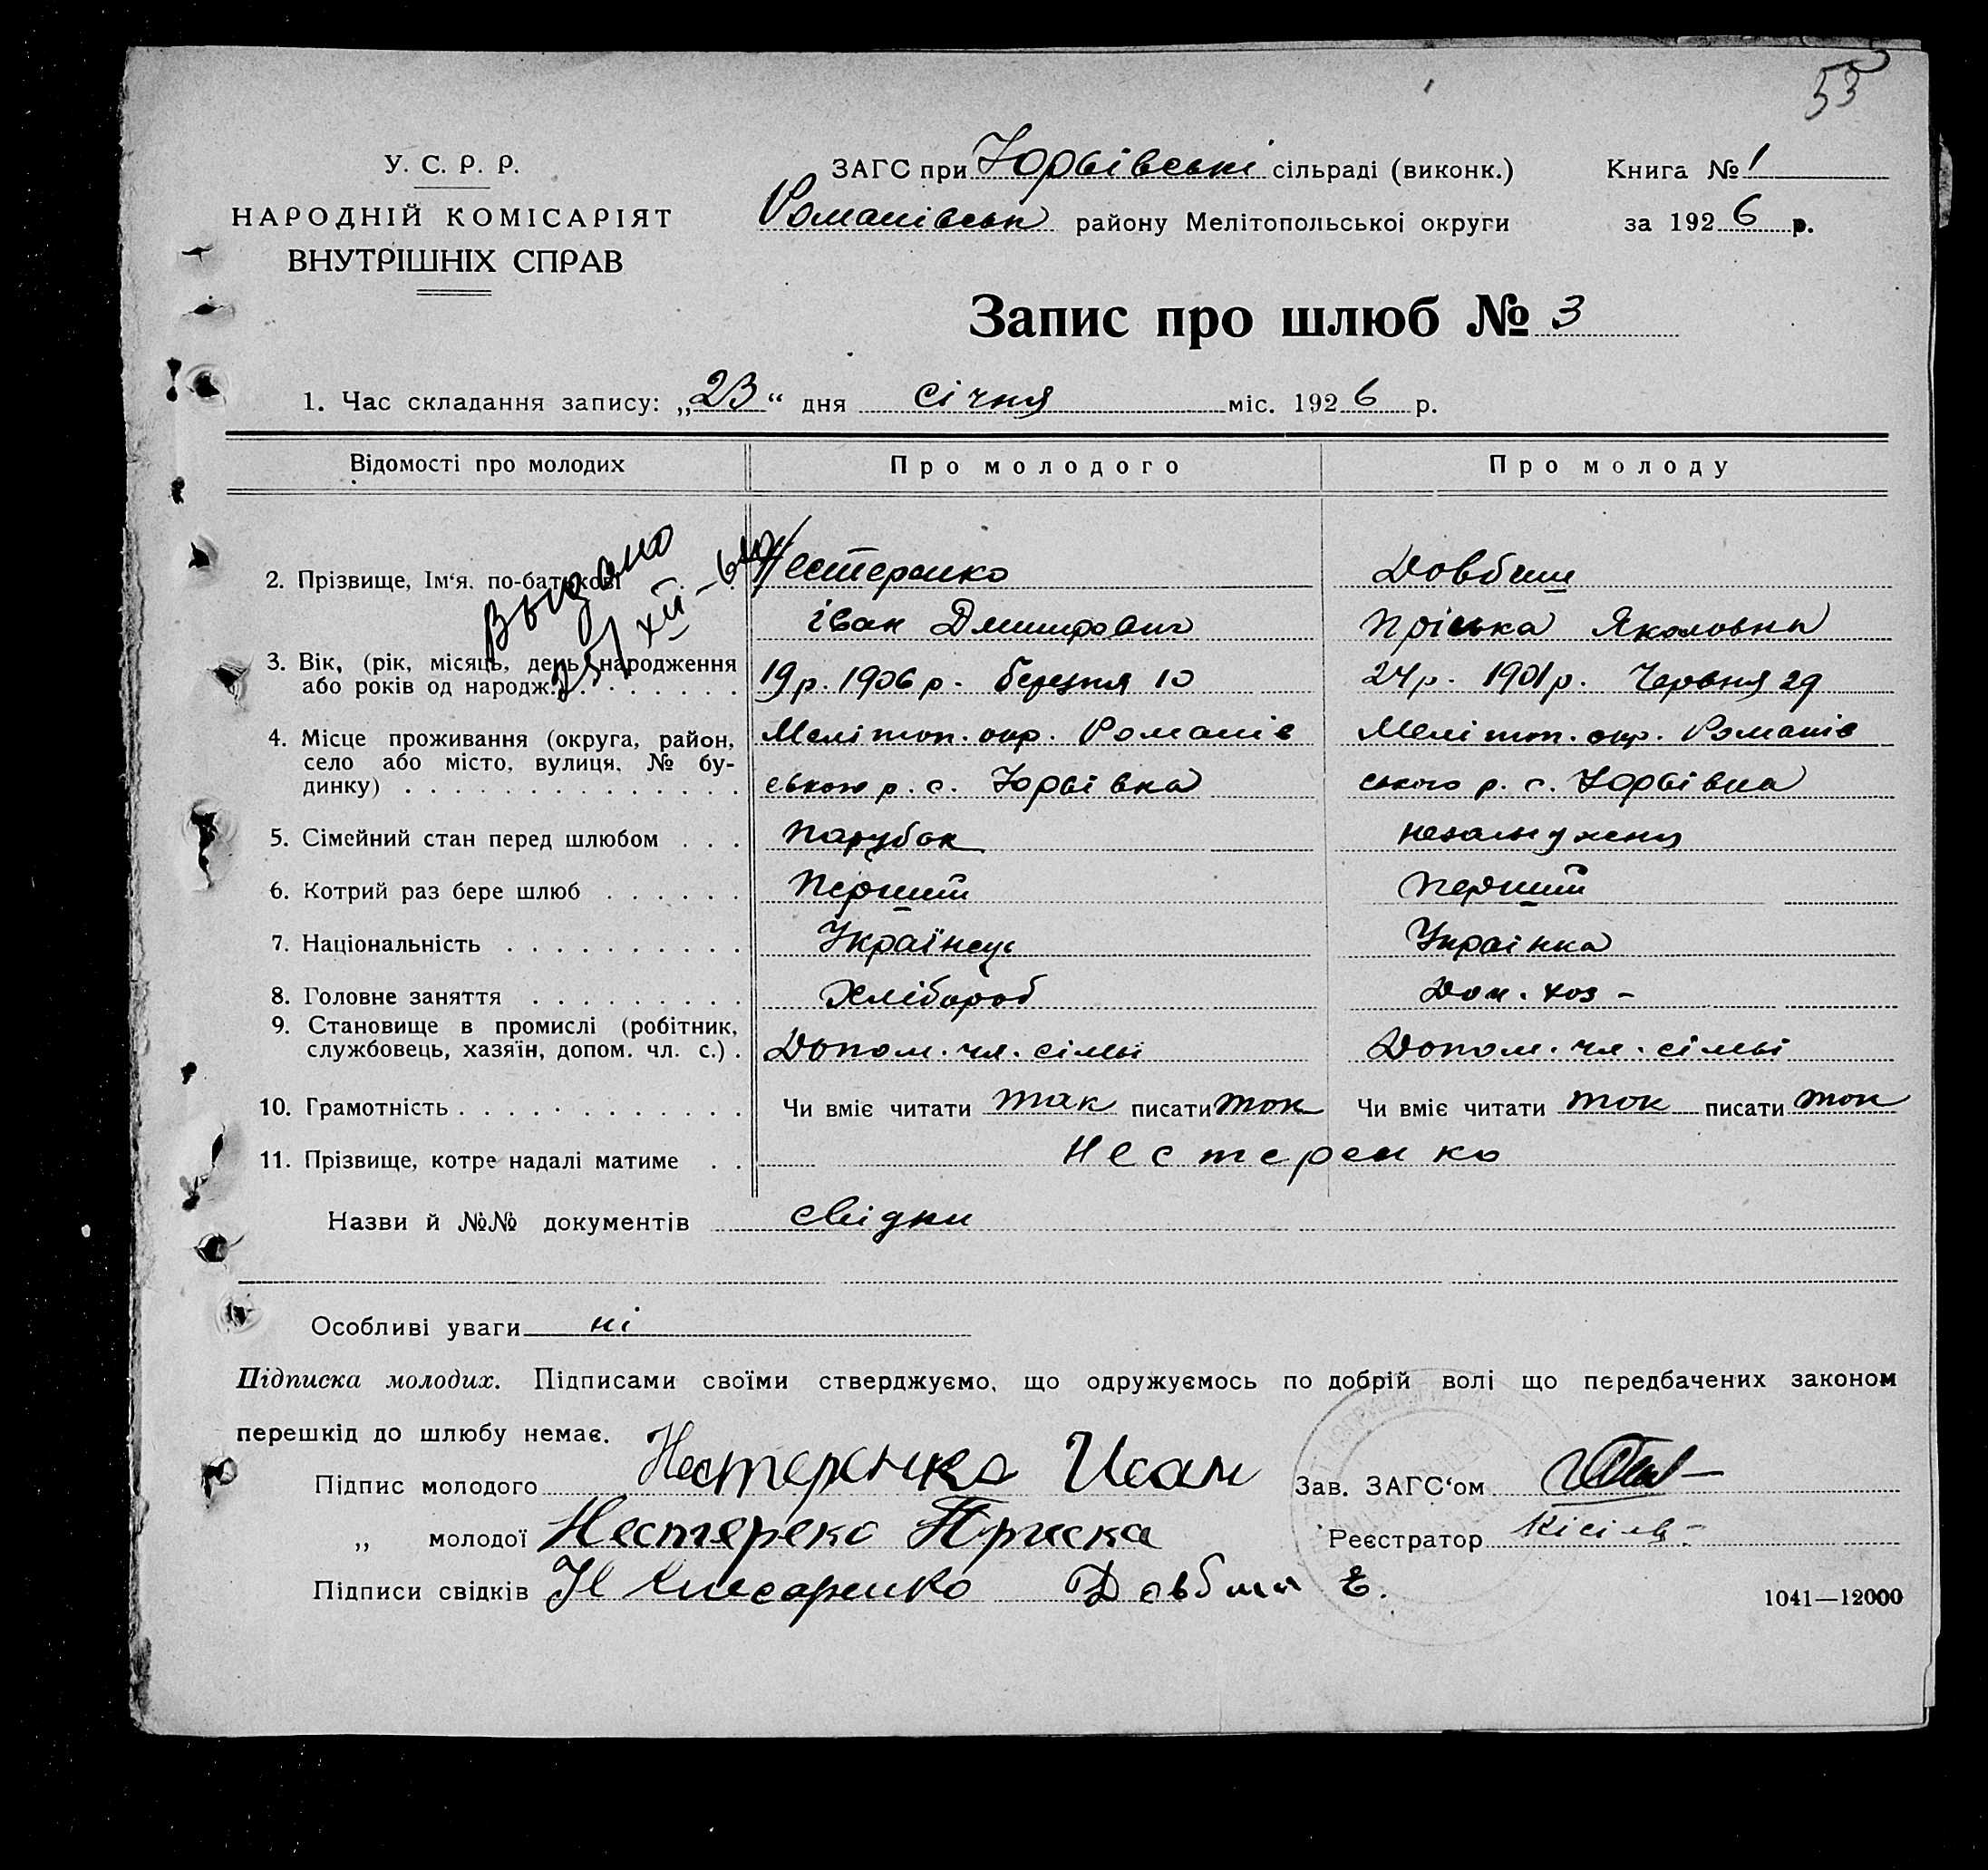 53
У. С. Р. Р.
НАРОДНІЙ КОМІСАРІЯТ
ВНУТРІШНІХ СПРАВ
ЗАГС при Юрьівські сільраді (виконк.)
Романівськ району Мелітопольської округи
Книга № 1
за 1926 р.
Запис про шлюб № 3
1. Час складання запису: „23“ дня січня міс. 1926 р.
Відомості про молодих
Про молодого
Про молоду
Выдано
2. Прізвище, Ім‘я, по-батькові
Нестеренко
Довбиш
іван Дмитрович
Пріська Яковловна
3. Вік, (рік, місяць, день народження
або років од народж.)
19р. 1906р. березня 10
24р. 1901р. Червня 29
4. Місце проживання (округа, район,
село або місто, вулиця, № бу-
динку)
Меліт​оп. окр. Романів
ського р. с. Юрьівка
Мелітоп. окр. Романів
ського р. с. Юрьівка
5. Сімейний стан перед шлюбом
парубок
6. Котрий раз бере шлюб
перший
перший
7. Національність
Українець
Українка
8. Головне заняття
Хлібороб
Дом. хоз -
9. Становище в промислі (робітник,
службовець, хазяїн, допом. чл. с.)
Допом. чл. сімьї
Допом. чл. сімьі
10. Грамотність
Чи вміє читати так писати так
Чи вміє читати так писати так
11. Прізвище, котре надалі матиме
Нестеренко
Назви й №№ документів свідки
Особливі уваги ні
Підписка молодих. Підписами своїми стверджуємо, що одружуємось по добрій волі що передбачених законом
перешкід до шлюбу немає.
Підпис молодого Нестеренко Иван
Зав. ЗАГС‘ом
„ молодої Нестереко Приска
Реєстратор
Підписи свідків Довбиш Е.
1041—12000